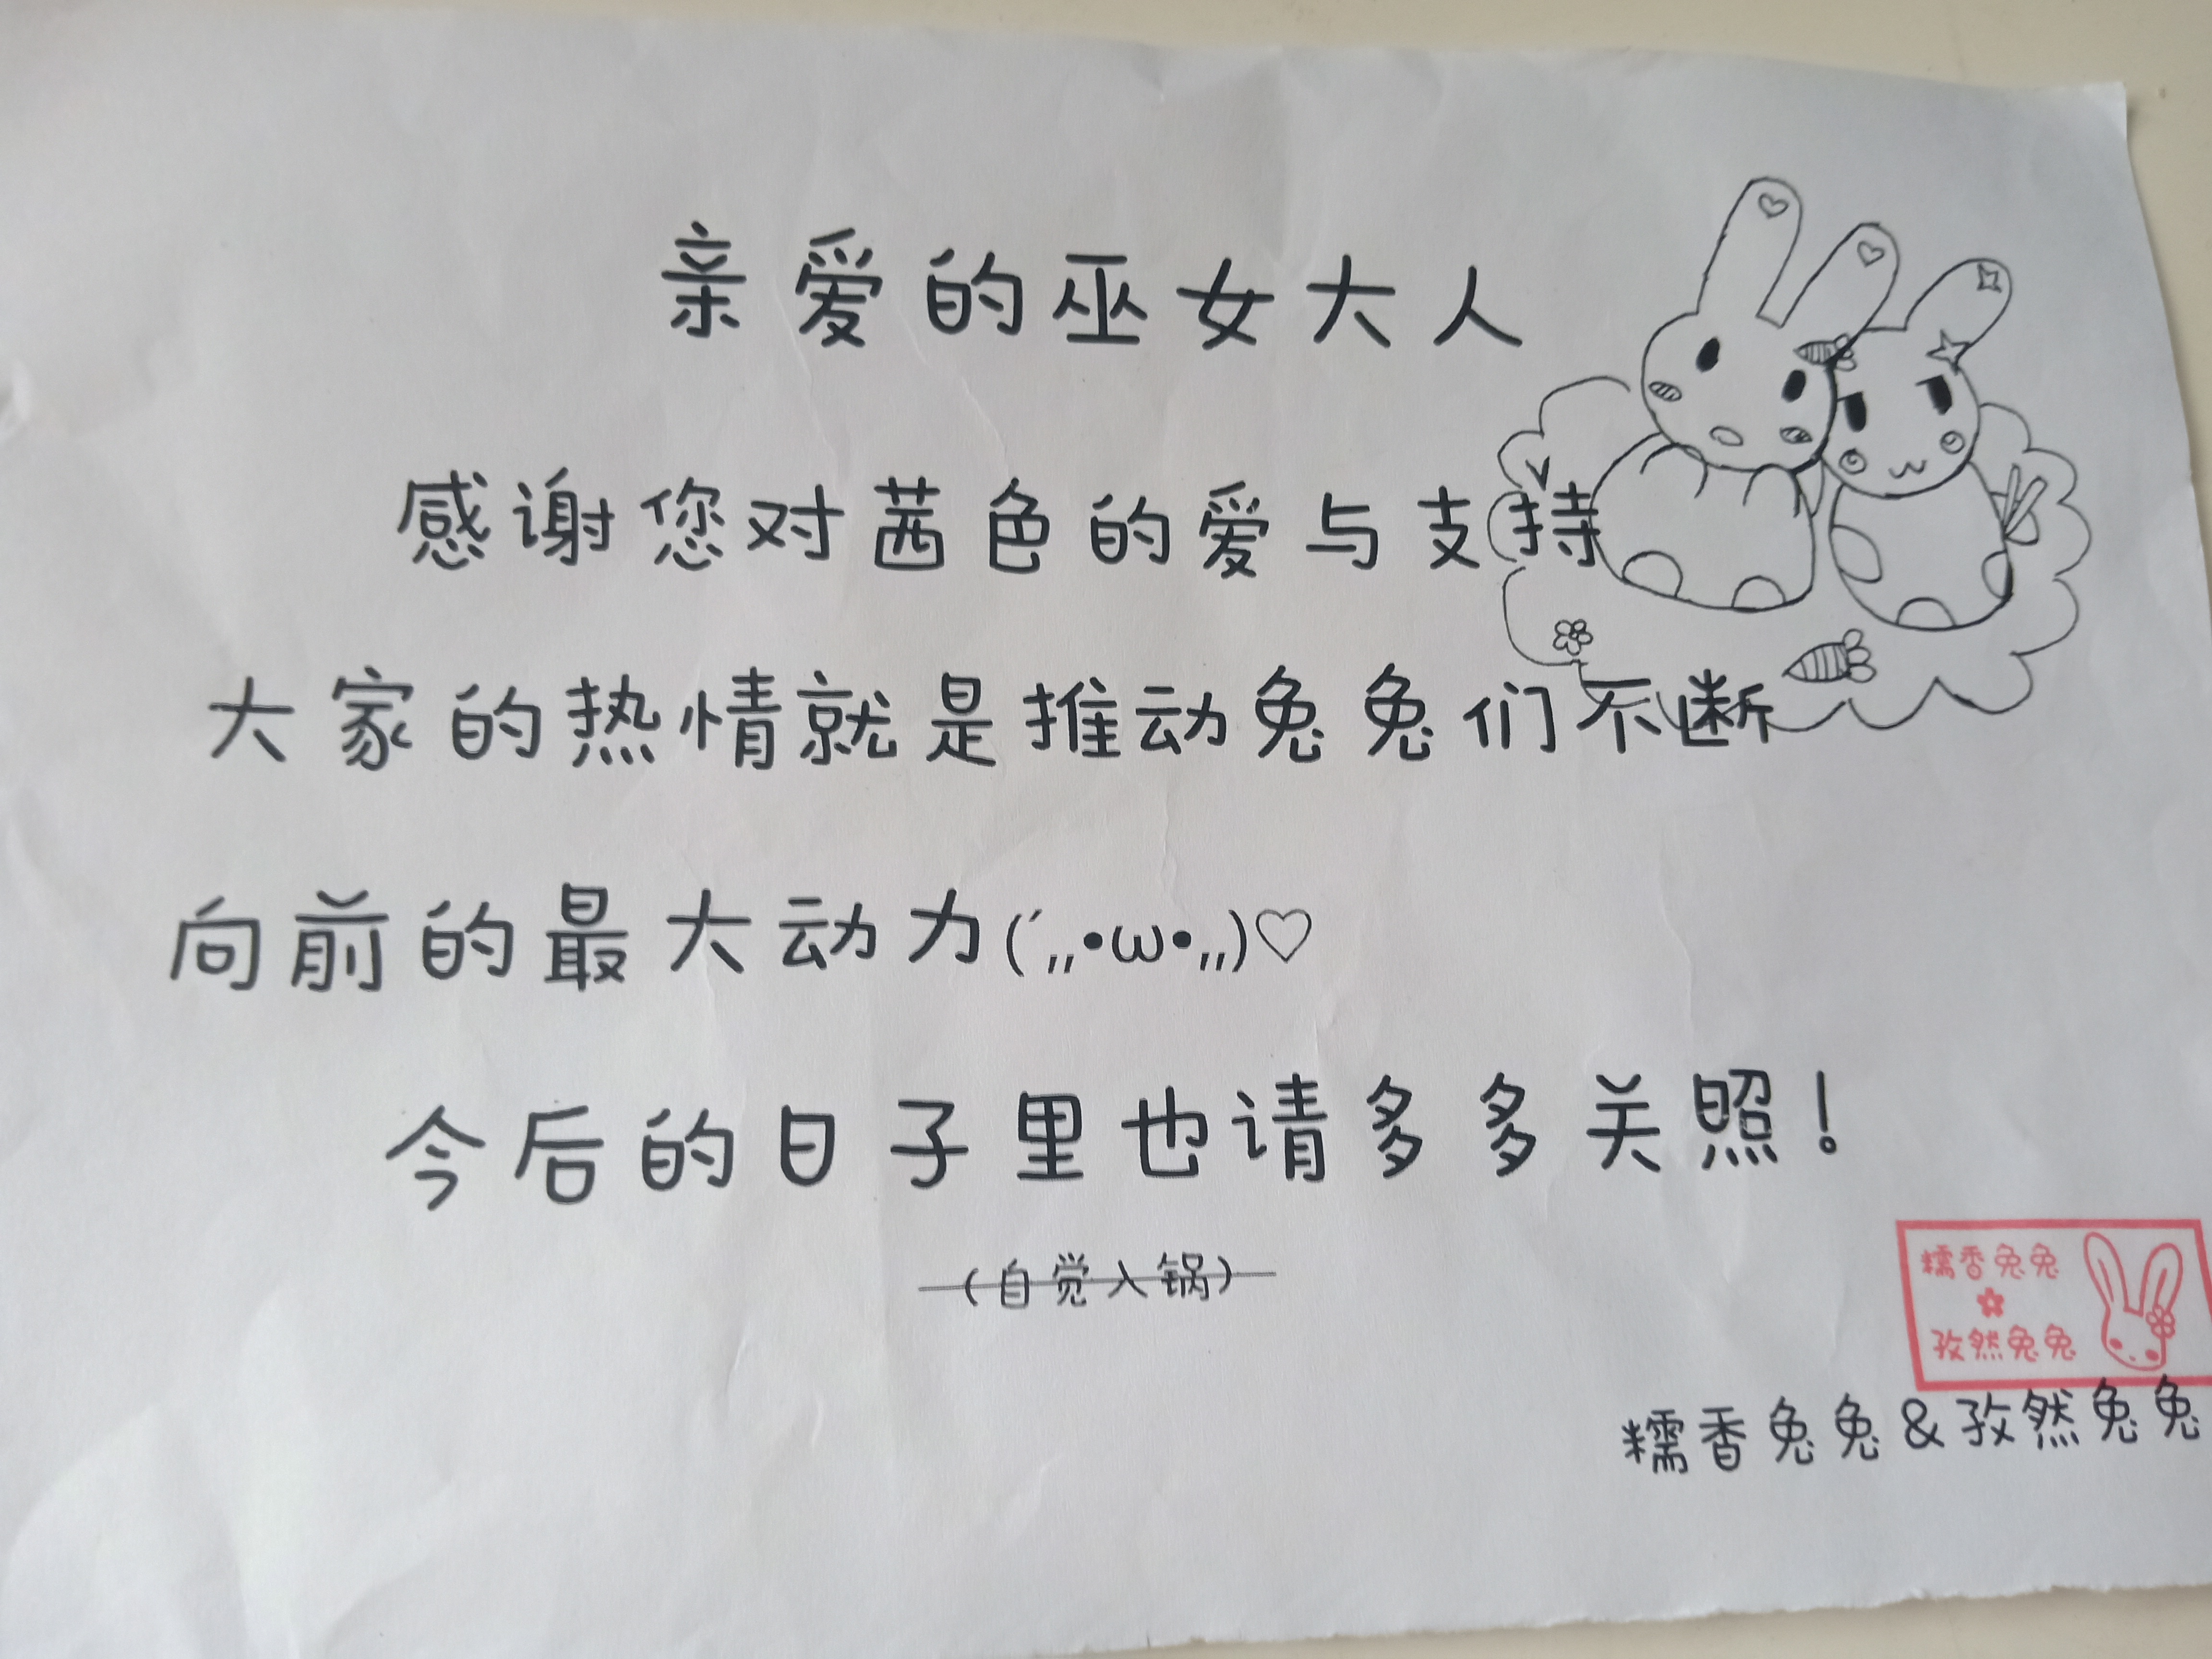 亲爱的巫女大人
感谢您对茜色的爱与支持
大家的热情就是推动兔兔们不断
向前的最大动力(´,,•ω•,,)♡
今后的日子里也请多多关照！
（自觉入锅）
糯香兔兔
孜然兔兔
糯香兔兔&孜然兔兔